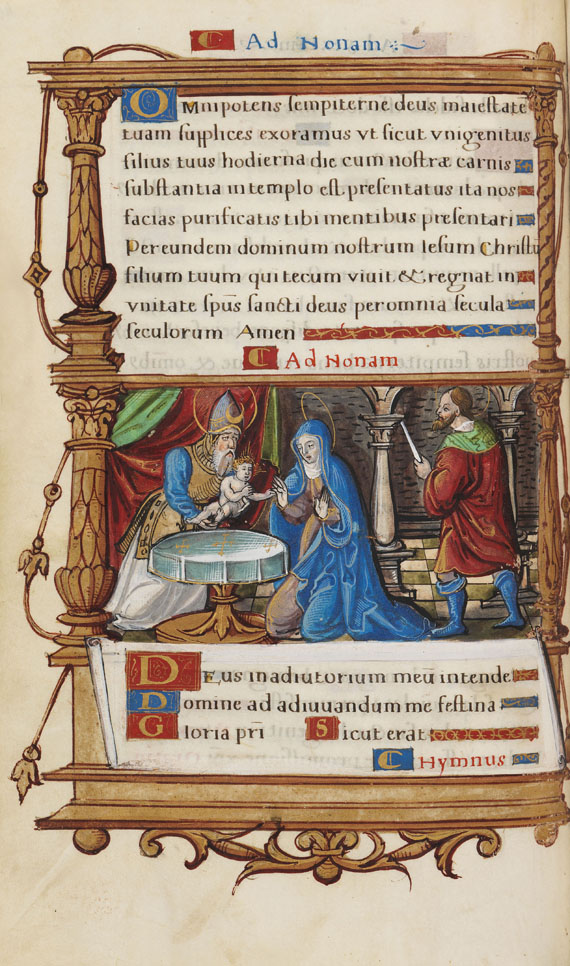 C Ad Nonam
OMnipotens sempiterne deus maiestate
tuam supplices exoramus vt sicut vnigenitus
filius tuus hodierna die cum nostræ carnis
substantia in templo est presentatus ita nos
facias purificatis tibi mentibus presentari
Per eundem dominum nostrum Iesum Christū
filium tuum qui tecum viuit & regnat in
vnitate spūs sancti deus per omnia secula
seculorum Amen
C Ad Nonam
DEus in adiutorium meū intende
Domine ad adiuuandum me festina
Gloria pr̄i Sicut erat
C Hymnus